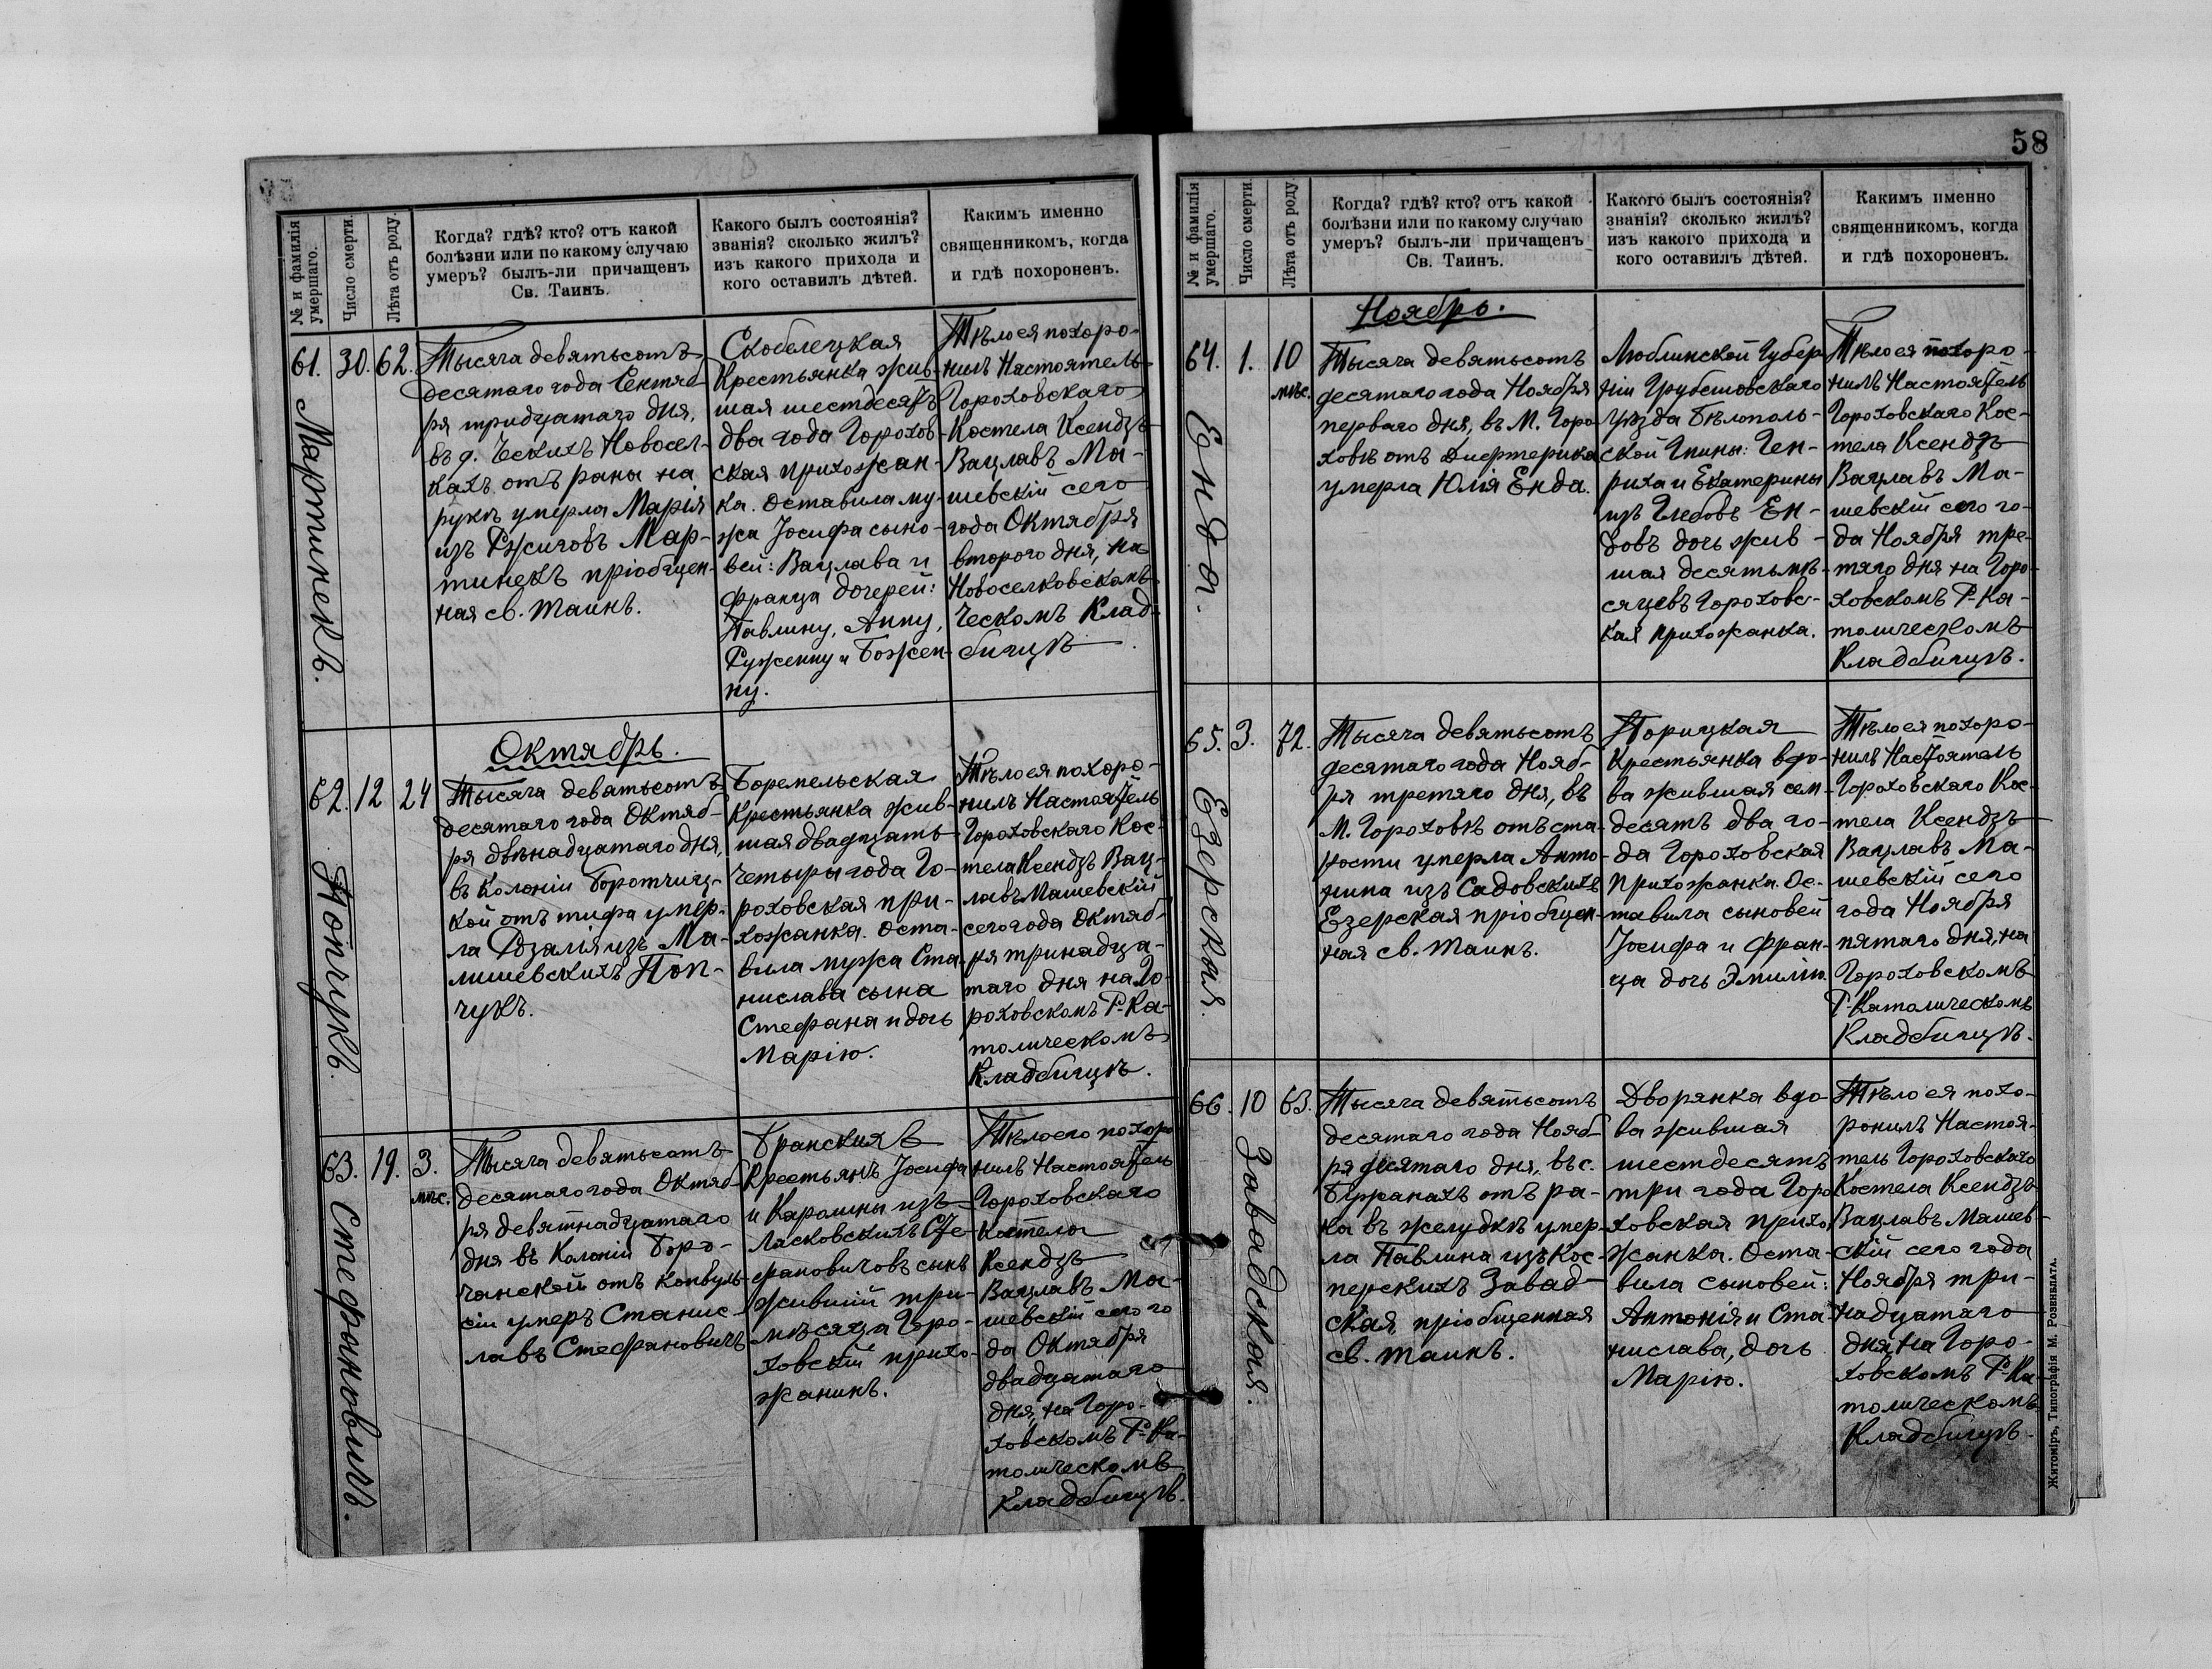 № и фамилія
умершаго.
Число смерти.
Лѣта отъ роду.
Когда? гдѣ? кто? отъ какой
болѣзни или по какому случаю
умеръ? былъ-ли причащенъ
Св. Таинъ.
Какого былъ состоянія?
званія? сколько жилъ?
изъ какого прихода и
кого оставилъ дѣтей.
Какимъ именно
священникомъ, когда
и гдѣ похороненъ.
61.
Мартинекъ.
30.
62.
Тысяча девятьсотъ
десятаго года Сентяб-
ря тридцатаго дня,
въ д. Ческихъ Новосел-
кахъ отъ раны на
рукѣ умерла Марія
изъ Ржиговъ Мар-
тинекъ пріобщен-
ная св. таинъ.
Скобелецкая
крестьянка жив-
шая шестдесятъ
два года Горохов-
ская прихожан-
ка. Оставила му-
жа Іосифа сыно-
вей: Вацлава и
Франца дочерей:
Павлину, Анну,
Руженну и Божен-
ну.
Тѣло ея похоро-
нилъ Настоятель
Гороховскаго
Костела Ксендзъ
Вацлавъ Ма-
шевскій сего
года Октября
второго дня, на
Новоселковскомъ
Ческомъ Клад-
бищѣ.
Октябрь.
62.
Попчукъ.
12
24
Тысяча девятьсотъ
десятаго года Октяб-
ря двѣнадцатаго дня,
въ Колоніи Боротчиц-
кой отъ тифа умер-
ла Розалія изъ Ма-
лишевскихъ Поп-
чукъ.
Боремельская
крестьянка жив-
шая двадцать
четыры года Го-
роховская при-
хожанка. Оста-
вила мужа Ста-
нислава сына
Стефана и дочь
Марію.
Тѣло ея похоро-
нилъ Настоятель
Гороховскаго Кос-
тела Ксендзъ Вац-
лавъ Машевскій
сего года Октяб-
ря тринадца-
таго дня на Го-
роховскомъ Р-Ка-
толическомъ
Кладбищѣ.
63.
Стефановичъ.
19.
3.
мѣс.
Тысяча девятьсотъ
десятаго года Октяб-
ря девятнадцатаго
дня въ Колоніи Боро-
чанской отъ конвуль-
сіи умеръ Станис-
лавъ Стефановичъ
Бранскихъ
Крестьянъ Іосифа
и Каролины изъ
Ласковскихъ Сте-
фановичовъ сынъ
жившій три-
мѣсяца Горо-
ховскій прихо-
жанинъ.
Тѣло его похоро-
нилъ Настоятель
Гороховскаго
Костела
Ксендзъ
Вацлавъ Ма-
шевскій сего го
да Октября
двадцатаго
дня, на Горо-
ховскомъ Р-Ка-
толическомъ
Кладбищѣ.
58
№ и фамилія
умершаго.
Число смерти.
Лѣта отъ роду.
Когда? гдѣ? кто? отъ какой
болѣзни или по какому случаю
умеръ? былъ-ли причащенъ
Св. Таинъ.
Какого былъ состоянія?
званія? сколько жилъ?
изъ какого прихода и
кого оставилъ дѣтей.
Какимъ именно
священникомъ, когда
и гдѣ похороненъ.
Ноябрь.
64.
Енда.
1.
10
мѣс.
Тысяча девятьсотъ
десятаго года Ноября
перваго дня, въ М. Горо
ховѣ отъ Дифтерика
умерла Юлія Енда.
Люблинской Губер
ніи Грубешовскаго
Уѣзда Бѣлополь-
ской Гмины: Ген-
риха и Екатерины
изъ Глебовъ Ен-
довъ дочь жив-
шая десять мѣ-
сяцевъ Гороховс-
кая прихожанка.
Тѣло ея похоро-
нилъ Настоятель
Гороховскаго Кос-
тела Ксендзъ
Вацлавъ Ма-
шевскій сего го-
да Ноября тре-
тяго дня на Горо-
ховскомъ Р-Ка-
толическомъ
Кладбищѣ.
65.
Езерская.
3.
72.
Тысяча девятьсотъ
десятаго года Нояб-
ря третяго дня, въ
М. Гороховѣ отъ ста-
рости умерла Анто-
нина изъ Садовскихъ
Езерская пріобщен-
ная св. таинъ.
Порицкая
Крестьянка вдо-
ва жившая сем
десятъ два го-
да Гороховская
прихожанка. Ос-
тавила сыновей
Іосифа и Фран-
ца дочь Эмилію.
Тѣло ея похоро-
нилъ Настоятель
Гороховскаго Кос-
тела Ксендзъ
Вацлавъ Ма-
шевскій сего
года Ноября
пятаго дня, на
Гороховскомъ
Р-Католическомъ
Кладбищѣ.
66.
Завадская.
10
63.
Тысяча девятьсотъ
десятаго года Нояб-
ря десятаго дня, въ с.
Бужанахъ отъ ра-
ка въ желудкѣ умер-
ла Павлина изъ Кос-
перскихъ Завад-
ская, пріобщенная
св. таинъ.
Дворянка вдо-
ва жившая
шестдесятъ
три года Горо
ховская прихо
жанка. Оста-
вила сыновей:
Антонія и Ста-
нислава, дочь
Марію.
Тѣло ея похо-
ронилъ Настоя-
тель Гороховскаго
Костела Ксендзъ
Вацлавъ Машев-
скій сего года
Ноября три-
надцатаго
дня, на Горо-
ховскомъ Р-Ка-
толическомъ
Кладбищѣ.
Житоміръ, Типографія М. Розенблата.